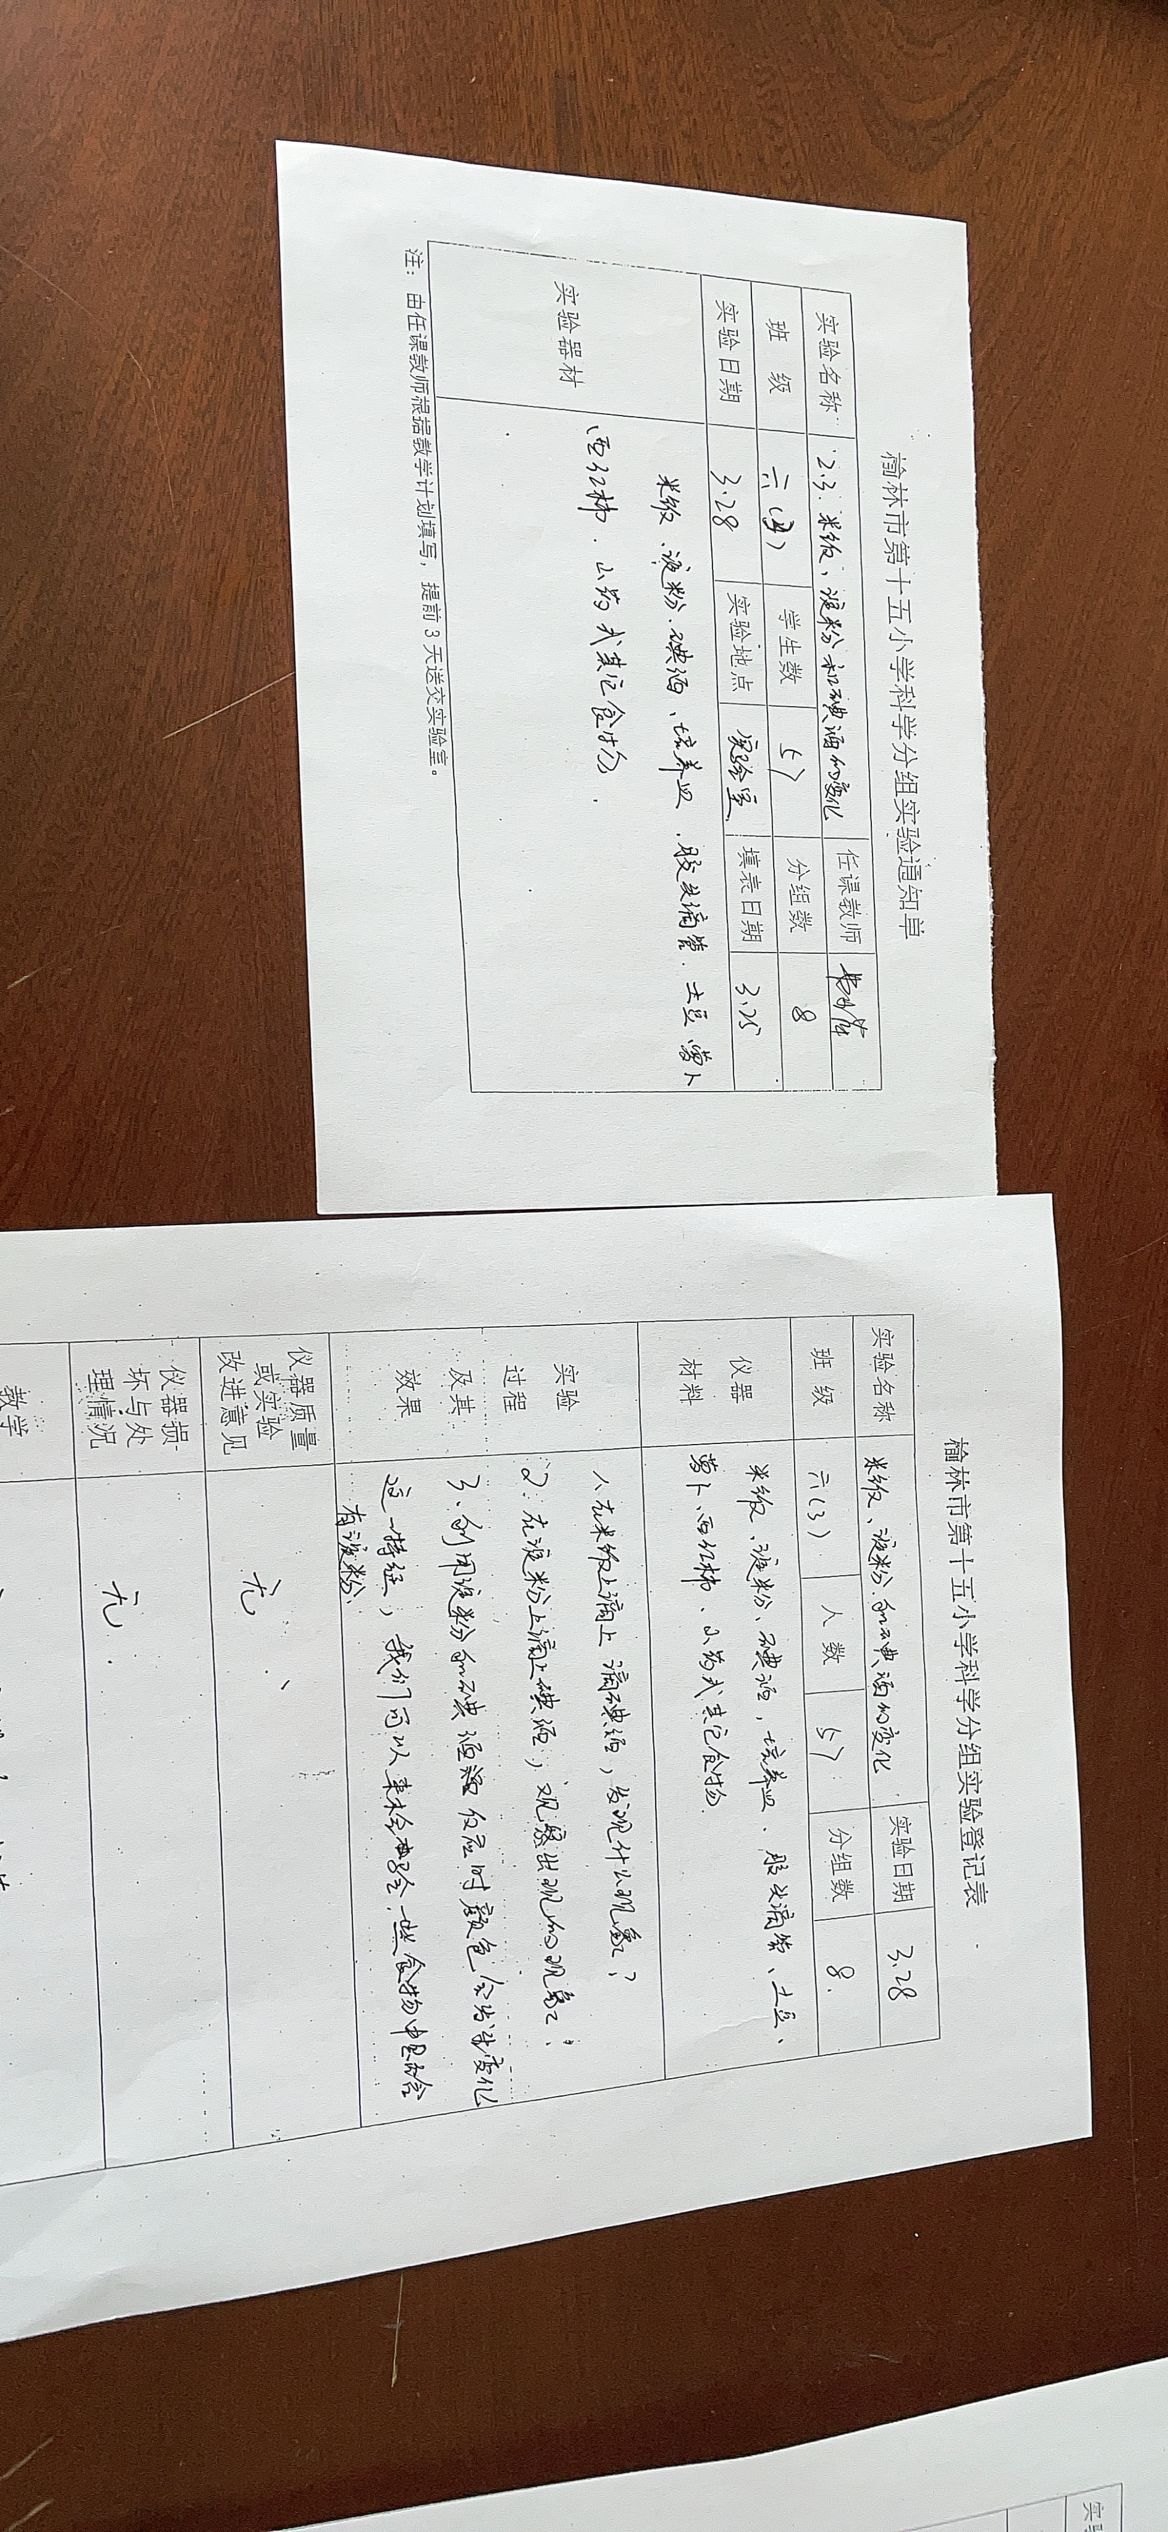 榆林市第十五小学科学分组实验通知单
实验名称 2.3. 米饭、淀粉和碘酒的变化 任课教师
班 级 六(3) 学生数 57 分组数 8
实验日期 3.28 实验地点 实验室 填表日期 3.25
实验器材
米饭、淀粉、碘酒、培养皿、胶头滴管、土豆 萝卜
西红柿、山药或其它食物.
注：由任课教师根据教学计划填写，提前 3 天送交实验室。
榆林市第十五小学科学分组实验登记表
实验名称 米饭、淀粉和碘酒的变化 实验日期 3.28
班 级 六(3) 人 数 57 分组数 8.
仪器
材料
米饭、淀粉、碘酒、培养皿、胶头滴管、土豆、
萝卜、西红柿、山药或其它食物.
实验
过程
及其
效果
1、在米饭上滴上滴碘酒，发现什么现象？
2、在淀粉上滴上碘酒，观察出现的现象？
3、利用淀粉和碘酒 反应时颜色会发生变化
这一特征，我们可以来检验一些食物中是否含
有淀粉.
仪器质量
或实验
改进意见
无、
仪器损
坏与处
理情况
无.
教学
实